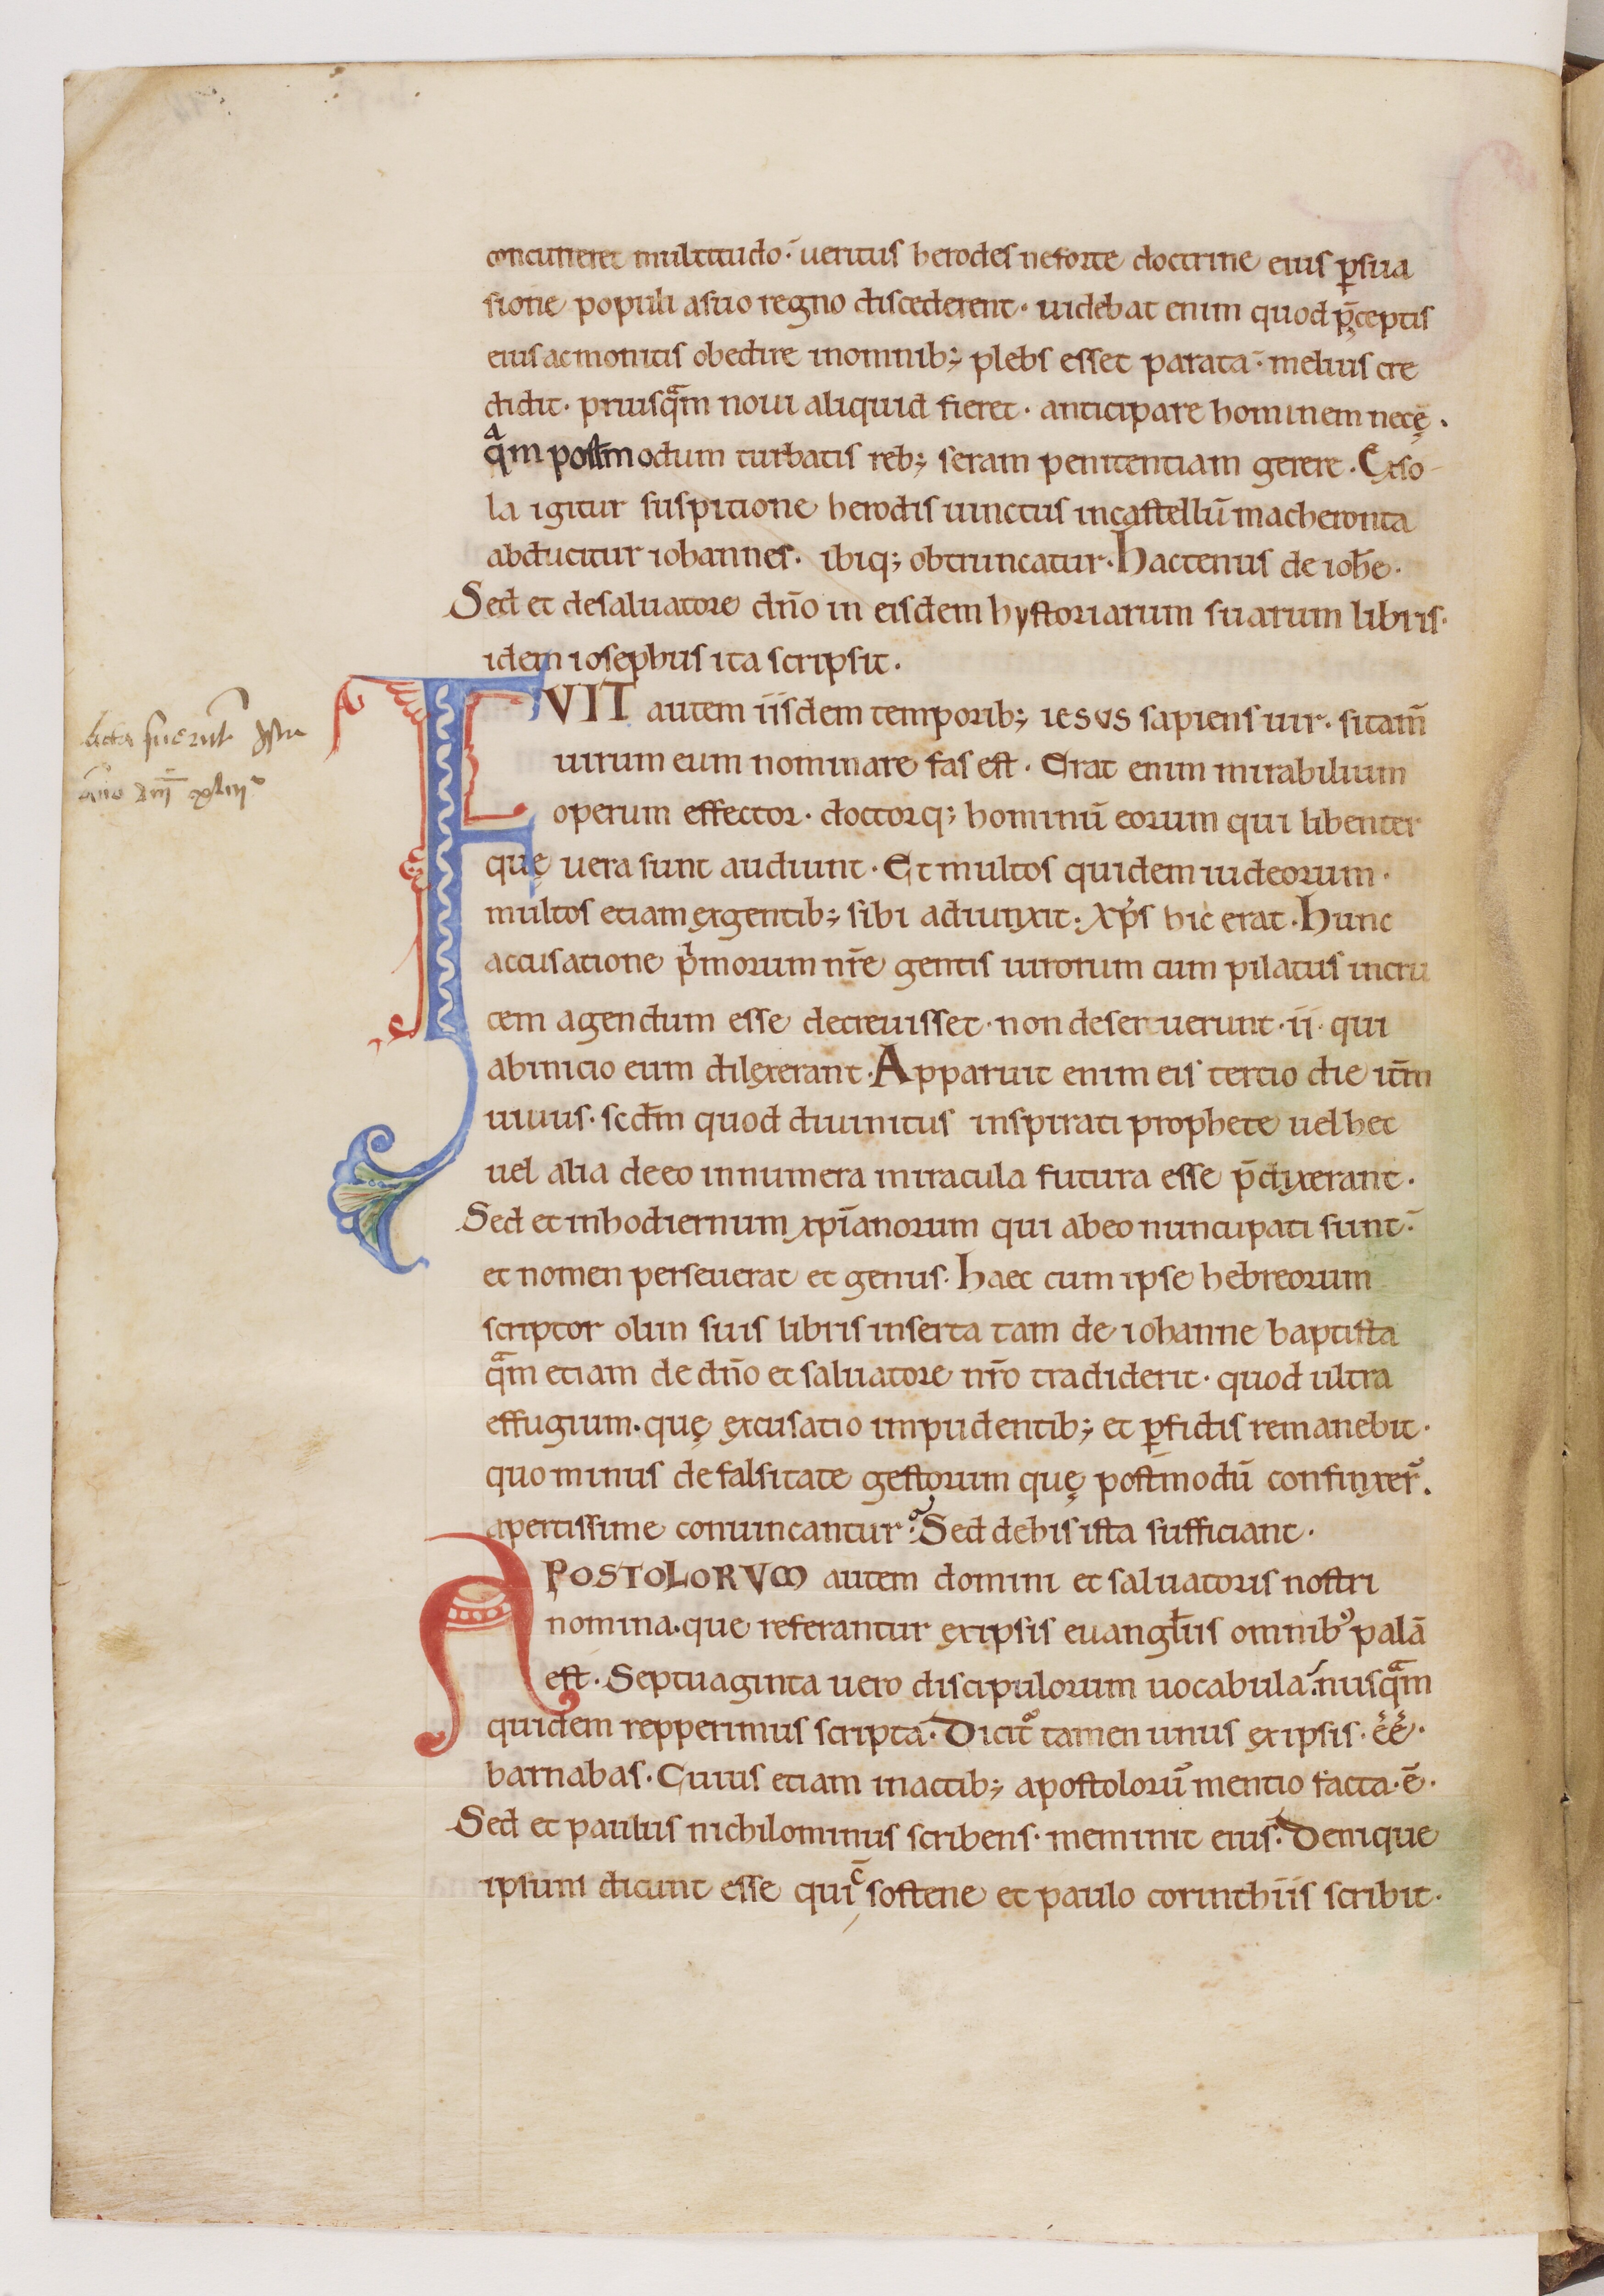 concurreret multitudo. ueritus herodes neforte doctrine eius ꝑsua
sione populi asuo regno discederent. uidebat enim quod p̄ceptis
eius ac monitis obedire inomnib; plebs esset parata. melius cre
didit. priusqᵃm noui aliquid fieret. anticipare hominem necę.
qᵃm postmodum turbatis reb; seram penitentiam gerere. Exso
la igitur suspitione herodis uinctus incastellū macheronta
abducitur iohannes. ibiq; obtruncatur. Hactenus de ioh̄e.
Sed et desaluatore dn̄o in eisdem hystoriarum suarum libris.
idem iosephus ita scripsit.
FVIT autem iisdem temporib; iesvs sapiens uir. sitam̄
uirum eum nominare fas est. Erat enim mirabilium
operum effector. doctorq; hominū eorum qui libenter
quę uera sunt audiunt. Et multos quidem iudeorum.
multos etiam exgentib; sibi adiunxit. xp̄s hic erat. Hunc
accusatione pⁱmorum nr̄e gentis uirorum cum pilatus incru
cem agendum esse decreuisset. non deseruerunt. ii. qui
abinicio eum dilexerant. Apparuit enim eis tercio die it̄m
uiuus. scd̄m quod diuinitus inspirati prophete uel hec
uel alia de eo innumera miracula futura esse p̄dixerant.
Sed et inhodiernum xp̄ianorum qui abeo nuncupati sunt.
et nomen perseuerat et genus. Haec cum ipse hebreorum
scriptor olim suis libris inserta tam de iohanne baptista
qᵃm etiam de dn̄o et saluatore nr̄o tradiderit. quod ultra
effugium. quę excusatio impudentib; et ꝑfidis remanebit.
quo minus de falsitate gestorum quę postmodū confinxer̄.
apertissime conuincantur. Sed dehis ista sufficiant.
APOSTOLORVM autem domini et saluatoris nostri
nomina. que referantur exipsis euangl̄iis omnibꝰ palā
est. Septuaginta uero discipulorum uocabula. nusqᵃm
quidem repperimus scripta. Dicit᷑ tamen unus exipsis. ēē.
barnabas. Cuius etiam inactib; apostolorū mentio facta. ē.
Sed et paulus nichilominus scribens. meminit eius. Denique
ipsum dicunt esse qui c̄ sostene et paulo corinthiis scribit.